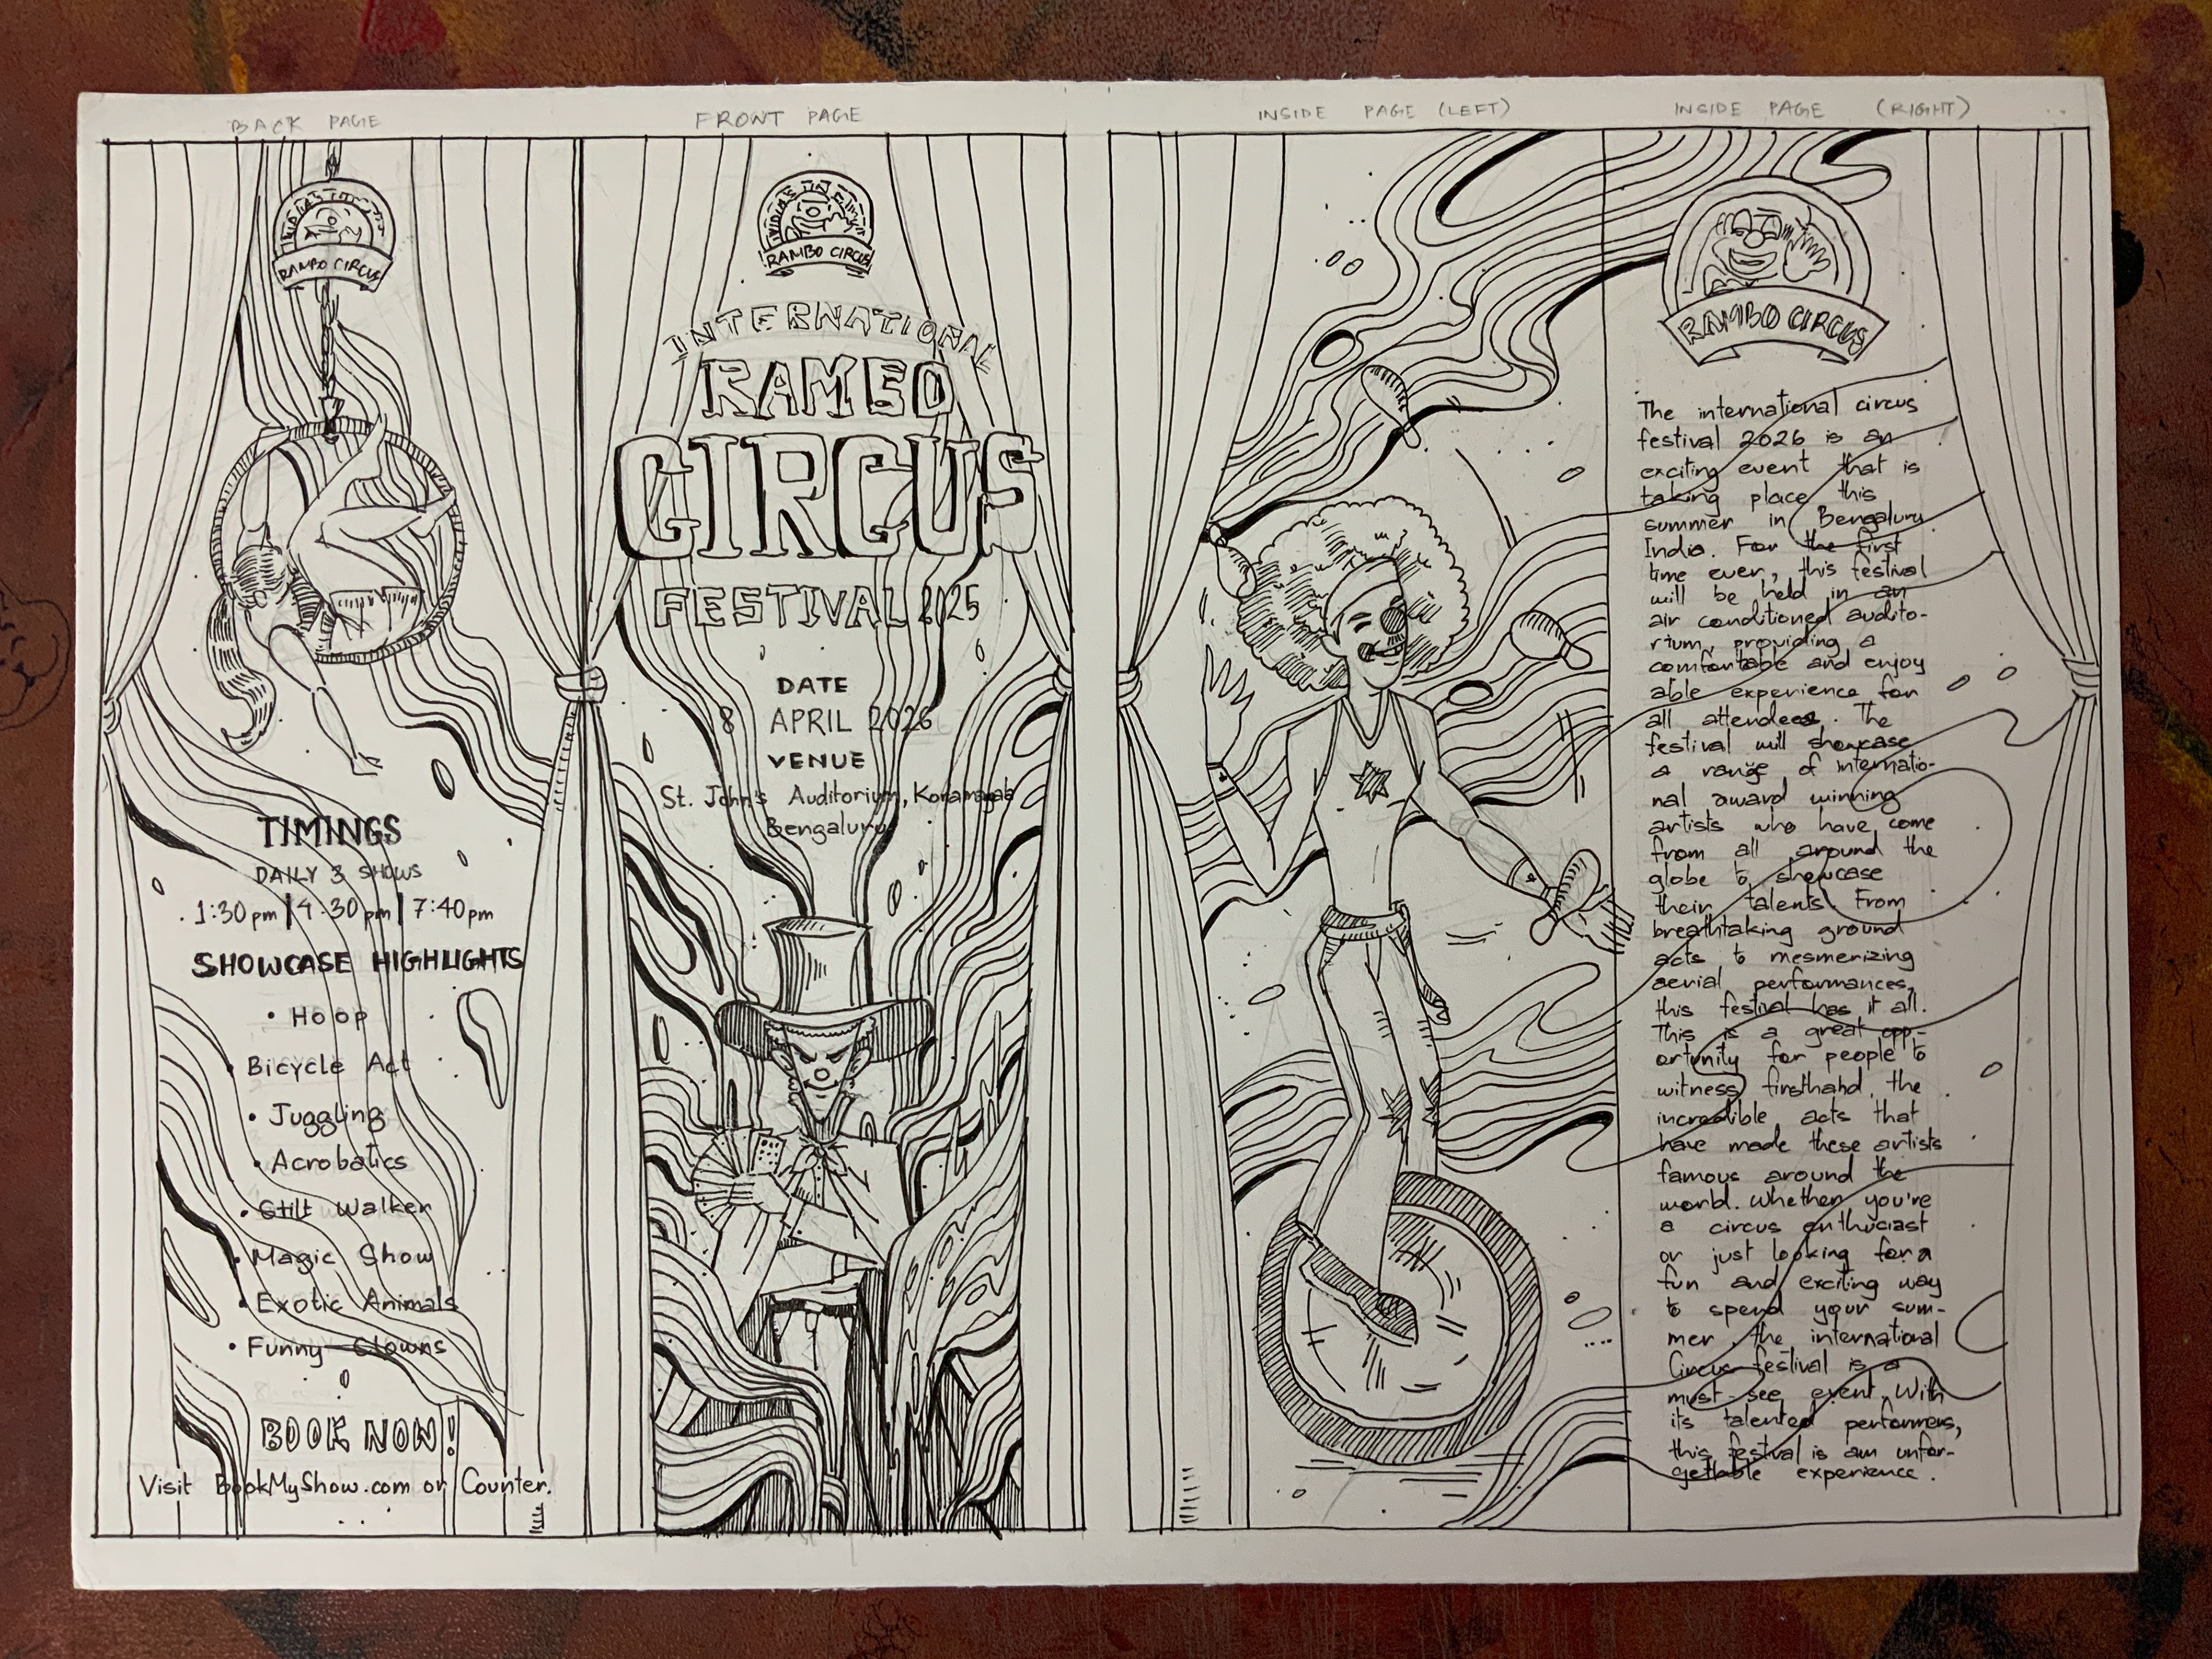 BACK PAGE
INDIA'S
RAMBO CIRCUS
TIMINGS
DAILY 3 SHOWS
1:30 pm | 4:30 pm | 7:40 pm
SHOWCASE HIGHLIGHTS
• Hoop
• Bicycle Act
• Juggling
• Acrobatics
• Stilt Walker
• Magic Show
• Exotic Animals
• Funny Clowns
BOOK NOW!
Visit BookMyShow.com or Counter.
FRONT PAGE
INDIA'S
RAMBO CIRCUS
INTERNATIONAL
RAMBO
CIRCUS
FESTIVAL 2025
DATE
8 APRIL 2026
VENUE
St. John's Auditorium, Koramagala
Bengaluru
INSIDE PAGE (LEFT)
INSIDE PAGE (RIGHT)
RAMBO CIRCUS
The international circus
festival 2026 is an
exciting event that is
taking place this
summer in Bengaluru
India. For the first
time ever, this festival
will be held in an
air conditioned audito-
rium, providing a
comfortable and enjoy
able experience for
all attendees. The
festival will showcase
a range of internatio-
nal award winning
artists who have come
from all around the
globe to showcase
their talents. From
breathtaking ground
acts to mesmerizing
aerial performances,
this festival has it all.
This is a great opp-
ortunity for people to
witness firsthand, the
incredible acts that
have made these artists
famous around the
world. Whether you're
a circus enthuciast
or just looking for a
fun and exciting way
to spend your sum-
mer, the international
Circus festival is a
must-see event. With
its talented performers,
this festival is am unfor-
gettable experience.